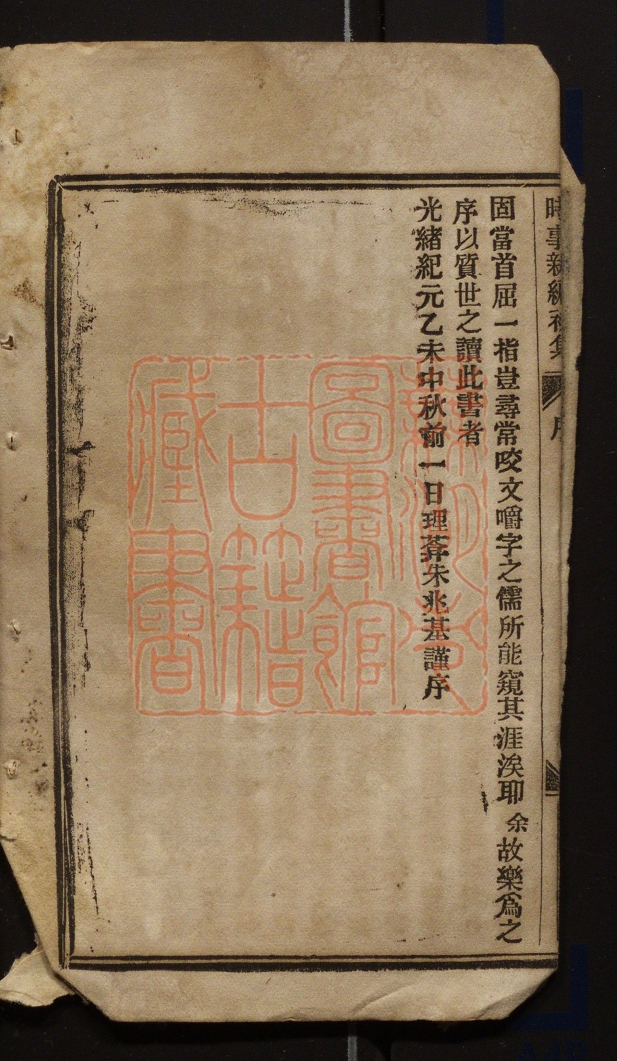 時事新編初集 序
固當首屈一指豈尋常咬文嚼字之儒所能窺其涯涘耶余故樂爲之
序以質世之讀此書者
光緒紀元乙未中秋前一日理莽朱兆基謹序
圖書館
古籍
藏書